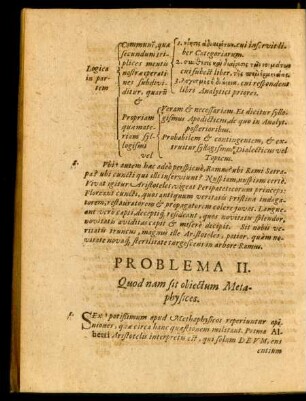 Logica
in par-
tem
Communẽ, quæ
secundum tri-
plices mentis
nostræ operatio-
nes subdivi-
ditur, quarũ
&
Propriam
quamate-
riam syl-
logismi
vel
cui inservit li-
ber Categoriarum.
cui subest liber
cui respondent
libri Analytici priores.
Veram & necessariam. Et dicitur syllo-
gismus Apodicticus, de quo in Analyt.
posterioribus.
Probabilem & contingentem, & ex-
truitur syllogismus Dialecticus vel
Topicus.
Vbi autem hac adeò perspicuè, Ramus? ubi Rami Secta-
pax? ubi cuncti qui illi inserviunt? Nusquam, nusquam certè.
Vivat igitur Aristoteles, vigeat Peripateticorum princeps.
Floreant cuncti, quos antiquum veritatis tristius indaga-
torem, restauratorem & propagatorem colere juvat. Langue-
ant verò capti, decepti, rejiciant, quos novitatis splendor,
novitatis aviditas capit & miserè decipit. Sit nobis
veritatis truncus, magnus ille Aristoteles, potior, quàm no-
vitatis novus, sterilitate turgescens in arbore Ramus.
PROBLEMA II.
Quodnam sit obiectum Meta-
physices.
SEx potissimum apud Methaphysicos reperiuntur opi-
niones, quæ circa hanc quæstionem militant. Prima Al-
berti Aristotelis interpretis est, qui solum DEVM, ens
entium